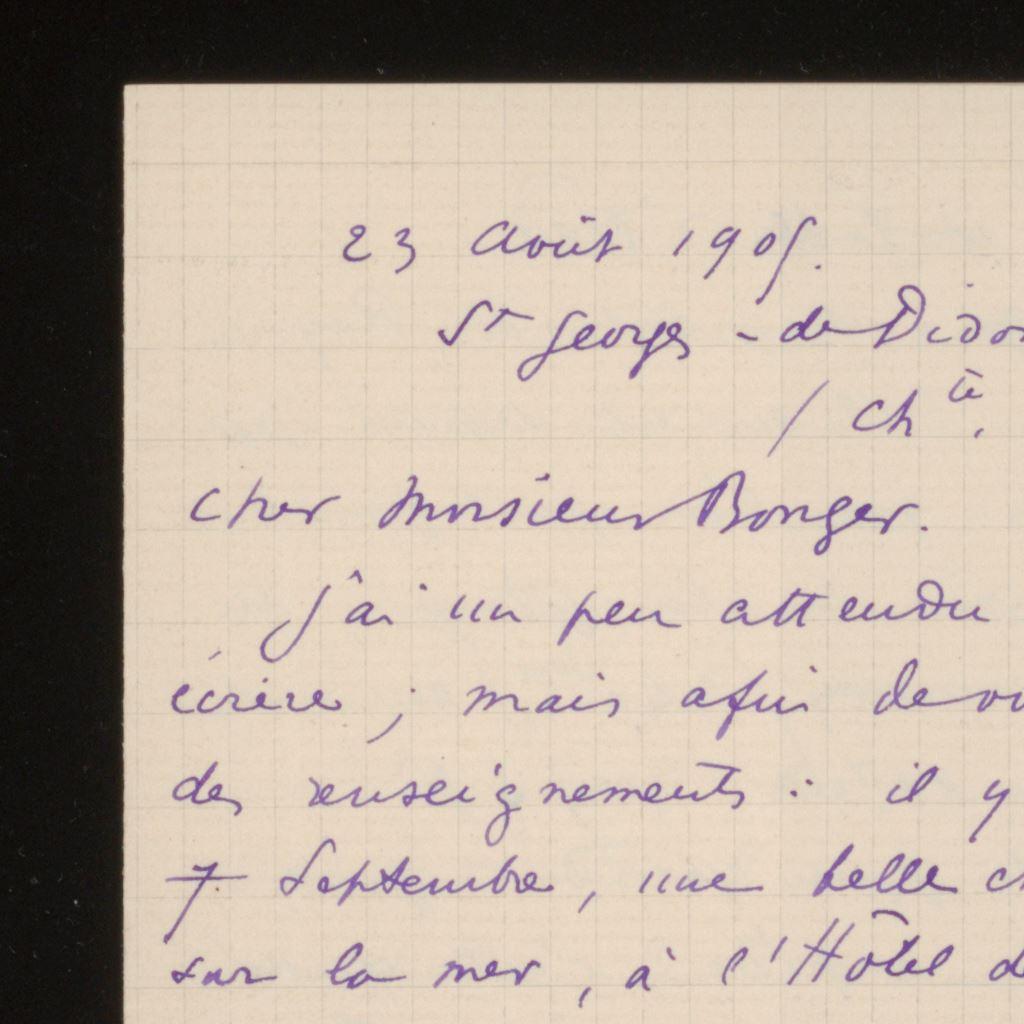 23 Août 1905.
St Georges - de Dido
/ Ch te.
cher Monsieur Bonger.
J'ai un peu attendu
écrire ; mais afin de vo
des renseignements : il y
7 Septembre, une belle ch
sur la mer, à l'Hôtel d